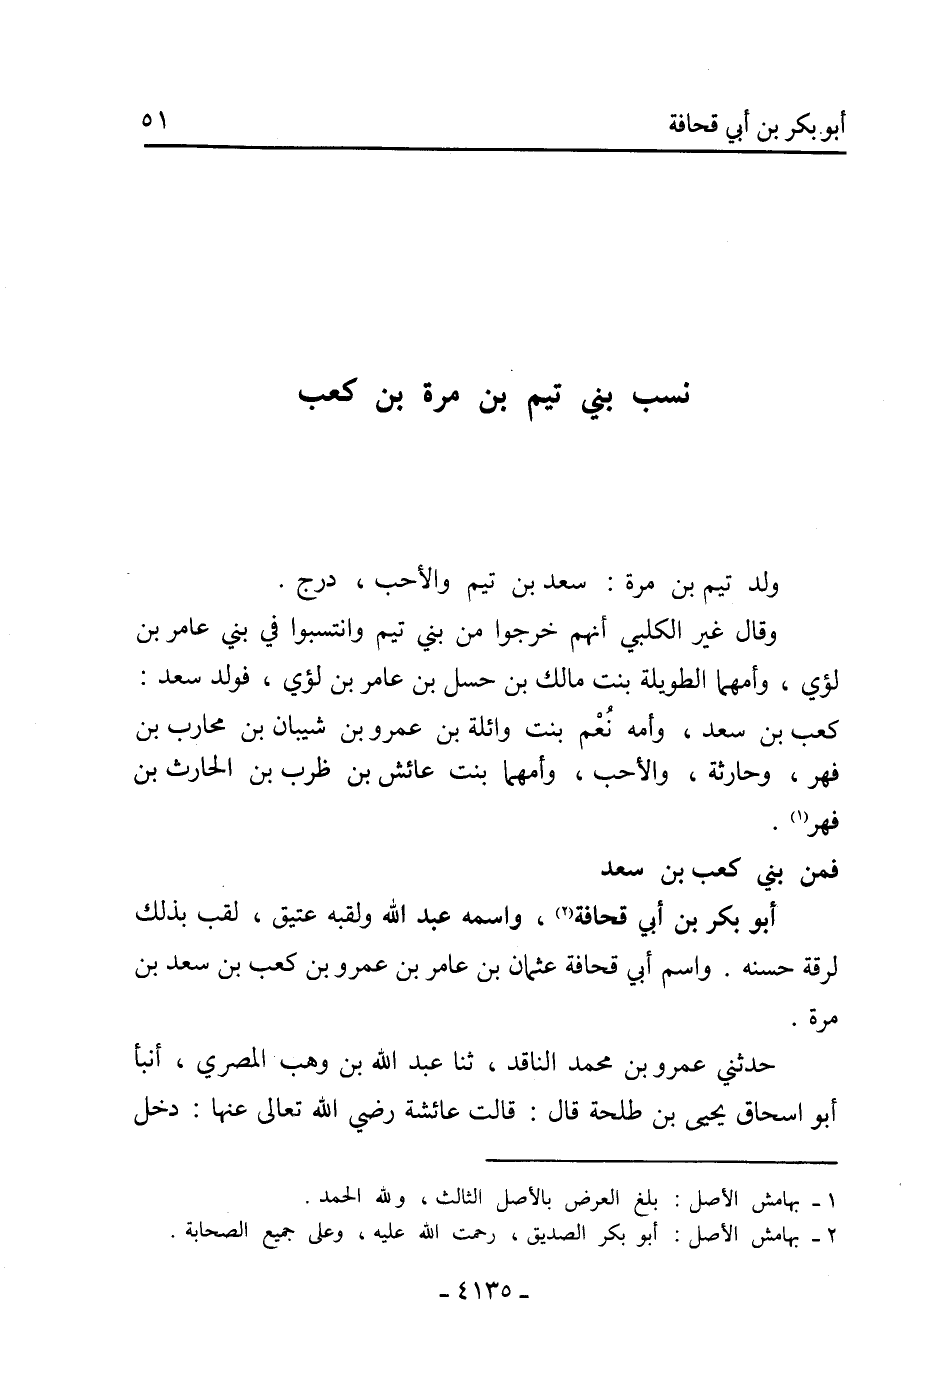 أبو بكر بن أبي قحافة ٥١
نسب بني تيم بن مرة بن كعب
ولد تيم بن مرة : سعد بن تيم والأحب ، درج .
وقال غير الكلبي أنهم خرجوا من بني تيم وانتسبوا في بني عامر بن
لؤي ، وأمهما الطويلة بنت مالك بن حسل بن عامر بن لؤي ، فولد سعد :
كعب بن سعد ، وأمه نُعْم بنت وائلة بن عمرو بن شيبان بن محارب بن
فهر ، وحارثة ، والأحب ، وأمهما بنت عائش بن ظرب بن الحارث بن
فهر(١) .
فمن بني كعب بن سعد
أبو بكر بن أبي قحافة(٢) ، واسمه عبد الله ولقبه عتيق ، لقب بذلك
لرقة حسنه . واسم أبي قحافة عثمان بن عامر بن عمرو بن كعب بن سعد بن
مرة .
حدثني عمرو بن محمد الناقد ، ثنا عبد الله بن وهب المصري ، أنبأ
أبو اسحاق يحيى بن طلحة قال : قالت عائشة رضي الله تعالى عنها : دخل
١ - بهامش الأصل : بلغ العرض بالأصل الثالث ، ولله الحمد .
٢ - بهامش الأصل : أبو بكر الصديق ، رحمت الله عليه ، وعلى جميع الصحابة .
- ٤١٣٥ -